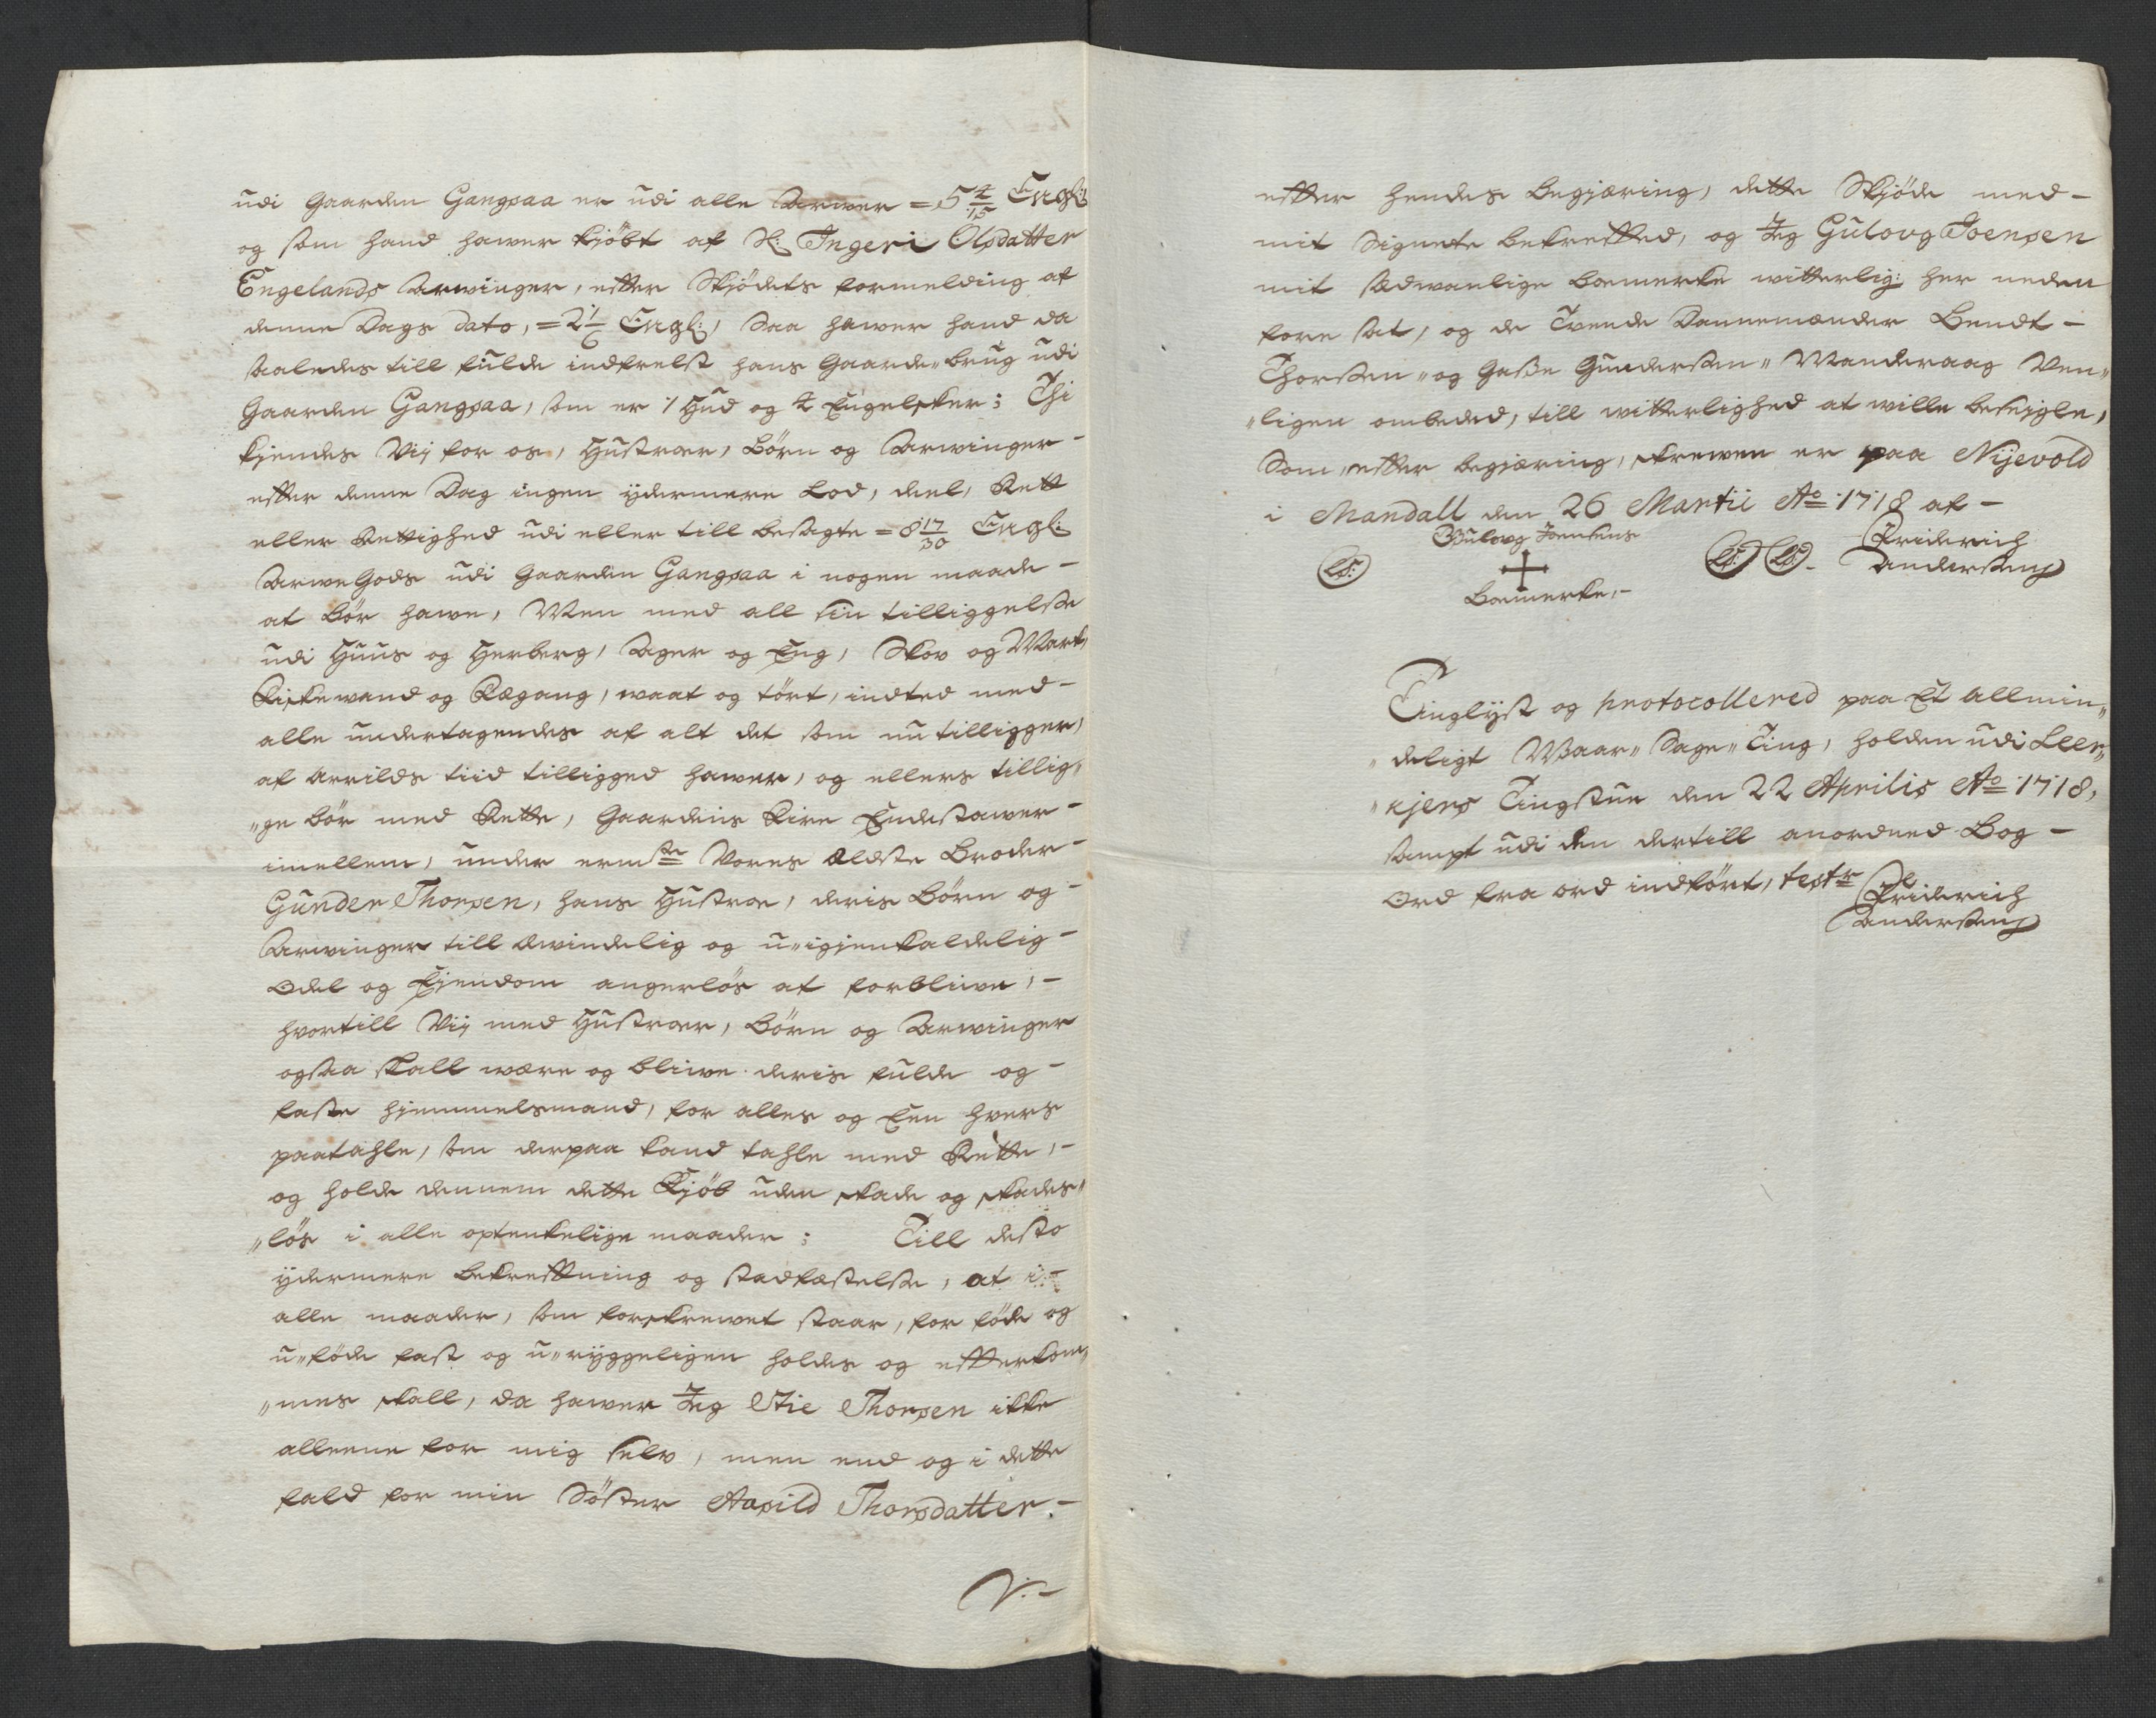 udi Gaarden Gangsaa er udi alle Sarver = 5 4/15 Engl:
og som hand hawer kjöbt af Sl: Ingeri Olsdatter
Engelands Arwinger, efter Skjödets formelding af
denne Dags dato, = 2 1/6 Engl:, Saa hawer hand da
saaledes till fulde indfrelst hans Gaarde-brug udi
Gaarden Gangsaa, som er 1 Hud og 4 Engelsker; Thi
kjendes Vij for os, Hustroer, Börn og Arwinger -
efter denne Dag ingen ydermere Lod, deel, Rett
eller Rettighed udi eller till besagte = 8 17/30 Engl:
Arwe Gods udi Gaarden Gangsaa i nogen maade -
at bör hawe, Men med all sin tilliggelse
udi Huus og Herberg, Ager og Eng, Skov og Mark,
Fiskewand og Fægang, waat og tört, indted med -
alle undertagendes af alt det som nu tilligger,
af Arrilds tiid tilligged hawer, og ellers tillig„
„ge bör med Rette, Gaardens Fire Endestawer -
imellem, under ermte Vores ældste Broder -
Gunder Thorsen, hans Hustroe, deris Börn og -
Arwinger till æwindelig og u„igjenkaldelig -
Odel og Ejendom angerlös at forbliwe, -
hvortill Vij med Hustroer, Börn og Arwinger
ogsaa skall være og bliwe deris fulde og -
faste hjemmelsmand, for alles og Een hvers
paatahle, som derpaa kand tahle med Rette, -
og holde dennem dette Kjöb uden skade og skades„
„lös i alle optenkelige maader; Till desto
ydermere bekreftning og stadfæstelse, at i -
alle maader, som forskrewet staar, for föde og
u„föde fast og u„ryggeligen holdes og efterkom„
„mes skall, da hawer Jeg Stie Thorsen ikke
alleene for mig selv, men end og i dette
fald for min Söster Aasild Thorsdatter -
V: -
efter hendes begjæring, dette Skjöde med -
mit Signete bekrefted, og Jeg Gulovg Joensen
mit sædwanlige boemerke witterlig: her neden
fore sat, og de Tvende Dannemænder Bendt -
Thorsen„ og Gasse Gundersen„ Manderaag Ven„
„ligen ombeded, till witterlighed at wille besejgle,
Som, efter begjæring, skrewen er paa Nijevold
i Mandall den 26 Martii Ao 1718 af -
Gulovg Joensens
LS: + LS: LS: Friderich
Andersen
Boemerke. -
Tinglijst og protocollered paa Et allmin„
„deligt Waar„ Sage„ Ting, holden udi Leer„
„kjers Tingstue den 22 Aprilis Ao 1718,
sampt udi den dertill anordned Bog -
Ord fra ord indfört, testr Friderich
Andersen